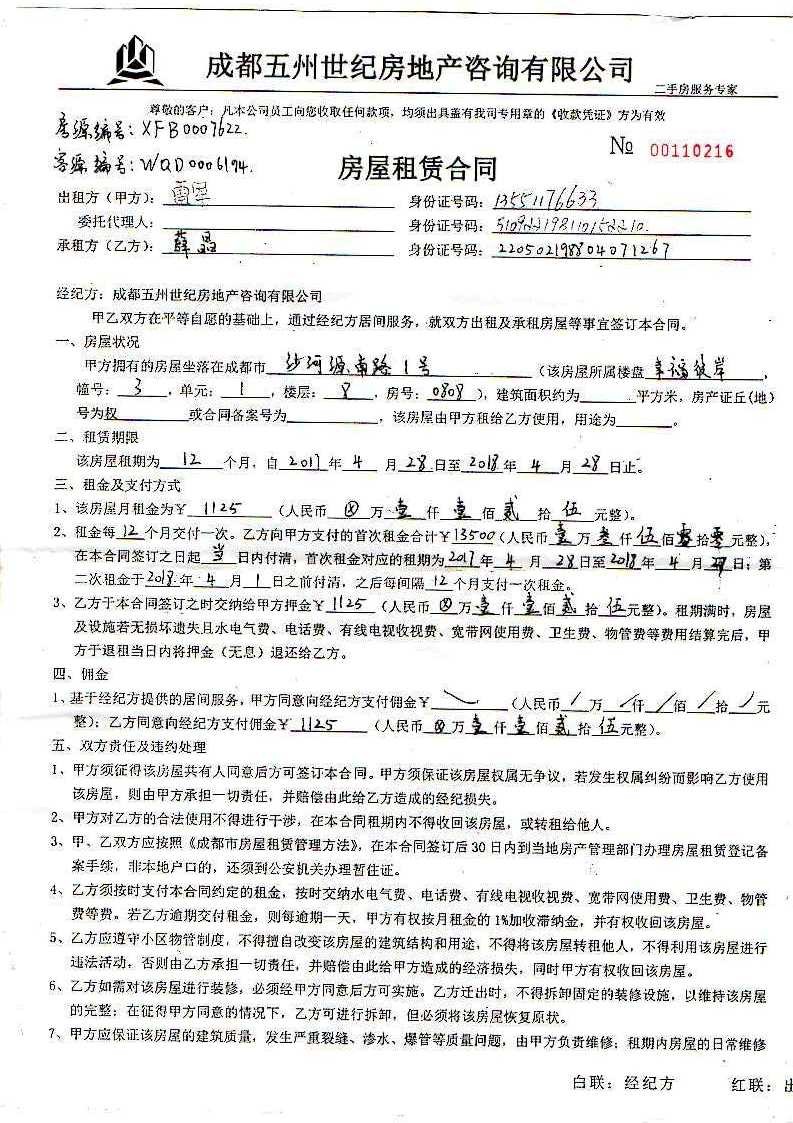 成都五州世纪房地产咨询有限公司
二手房服务专家
尊敬的客户：凡本公司员工向您收取任何款项，均须出具盖有我司专用章的《收款凭证》方为有效
房源编号：XFB0007622.
客源编号：WQD0006194.
房屋租赁合同
№ 00110216
出租方（甲方）： 身份证号码：13551176633
委托代理人： 身份证号码：510922198110152210.
承租方（乙方）：薛晶 身份证号码：220502198804071267
经纪方：成都五州世纪房地产咨询有限公司
甲乙双方在平等自愿的基础上，通过经纪方居间服务，就双方出租及承租房屋等事宜签订本合同。
一、房屋状况
甲方拥有的房屋坐落在成都市 沙河源南路1号 （该房屋所属楼盘 幸福彼岸，
幢号：3，单元：1，楼层：8，房号：0808），建筑面积约为 平方米，房产证丘(地)
号为权 或合同备案号为 ，该房屋由甲方租给乙方使用，用途为 。
二、租赁期限
该房屋租期为 12 个月，自 2017 年 4 月 28 日至 2018 年 4 月 28 日止。
三、租金及支付方式
1、该房屋月租金为￥ 1125 （人民币 ⊗ 万 壹 仟 壹 佰 贰 拾 伍 元整）。
2、租金每 12 个月交付一次。乙方向甲方支付的首次租金合计￥13500（人民币 壹 万 叁 仟 伍 佰 零 拾 零 元整），
在本合同签订之日起 当 日内付清，首次租金对应的租期为 2017 年 4 月 28 日至 2018 年 4 月 日；第
二次租金于 2018 年 4 月 1 日之前付清，之后每间隔 12 个月支付一次租金。
3、乙方于本合同签订之时交纳给甲方押金￥ 1125 （人民币 ⊗ 万 壹 仟 壹 佰 贰 拾 伍 元整）。租期满时，房屋
及设施若无损坏遗失且水电气费、电话费、有线电视收视费、宽带网使用费、卫生费、物管费等费用结算完后，甲
方于退租当日内将押金（无息）退还给乙方。
四、佣金
1、基于经纪方提供的居间服务，甲方同意向经纪方支付佣金￥ \ （人民币 / 万 / 仟 / 佰 / 拾 / 元
整）；乙方同意向经纪方支付佣金￥ 1125 （人民币 ⊗ 万 壹 仟 壹 佰 贰 拾 伍 元整）。
五、双方责任及违约处理
1、甲方须征得该房屋共有人同意后方可签订本合同。甲方须保证该房屋权属无争议，若发生权属纠纷而影响乙方使用
该房屋，则由甲方承担一切责任，并赔偿由此给乙方造成的经纪损失。
2、甲方对乙方的合法使用不得进行干涉，在本合同租期内不得收回该房屋，或转租给他人。
3、甲、乙双方应按照《成都市房屋租赁管理方法》，在本合同签订后30日内到当地房产管理部门办理房屋租赁登记备
案手续，非本地户口的，还须到公安机关办理暂住证。
4、乙方须按时支付本合同约定的租金，按时交纳水电气费、电话费、有线电视收视费、宽带网使用费、卫生费、物管
费等费。若乙方逾期交付租金，则每逾期一天，甲方有权按月租金的1%加收滞纳金，并有权收回该房屋。
5、乙方应遵守小区物管制度，不得擅自改变该房屋的建筑结构和用途，不得将该房屋转租他人，不得利用该房屋进行
违法活动，否则由乙方承担一切责任，并赔偿由此给甲方造成的经济损失，同时甲方有权收回该房屋。
6、乙方如需对该房屋进行装修，必须经甲方同意后方可实施。乙方迁出时，不得拆卸固定的装修设施，以维持该房屋
的完整；在征得甲方同意的情况下，乙方可进行拆卸，但必须将该房屋恢复原状。
7、甲方应保证该房屋的建筑质量，发生严重裂缝、渗水、爆管等质量问题，由甲方负责维修；租期内房屋的日常维修
白联：经纪方 红联：出